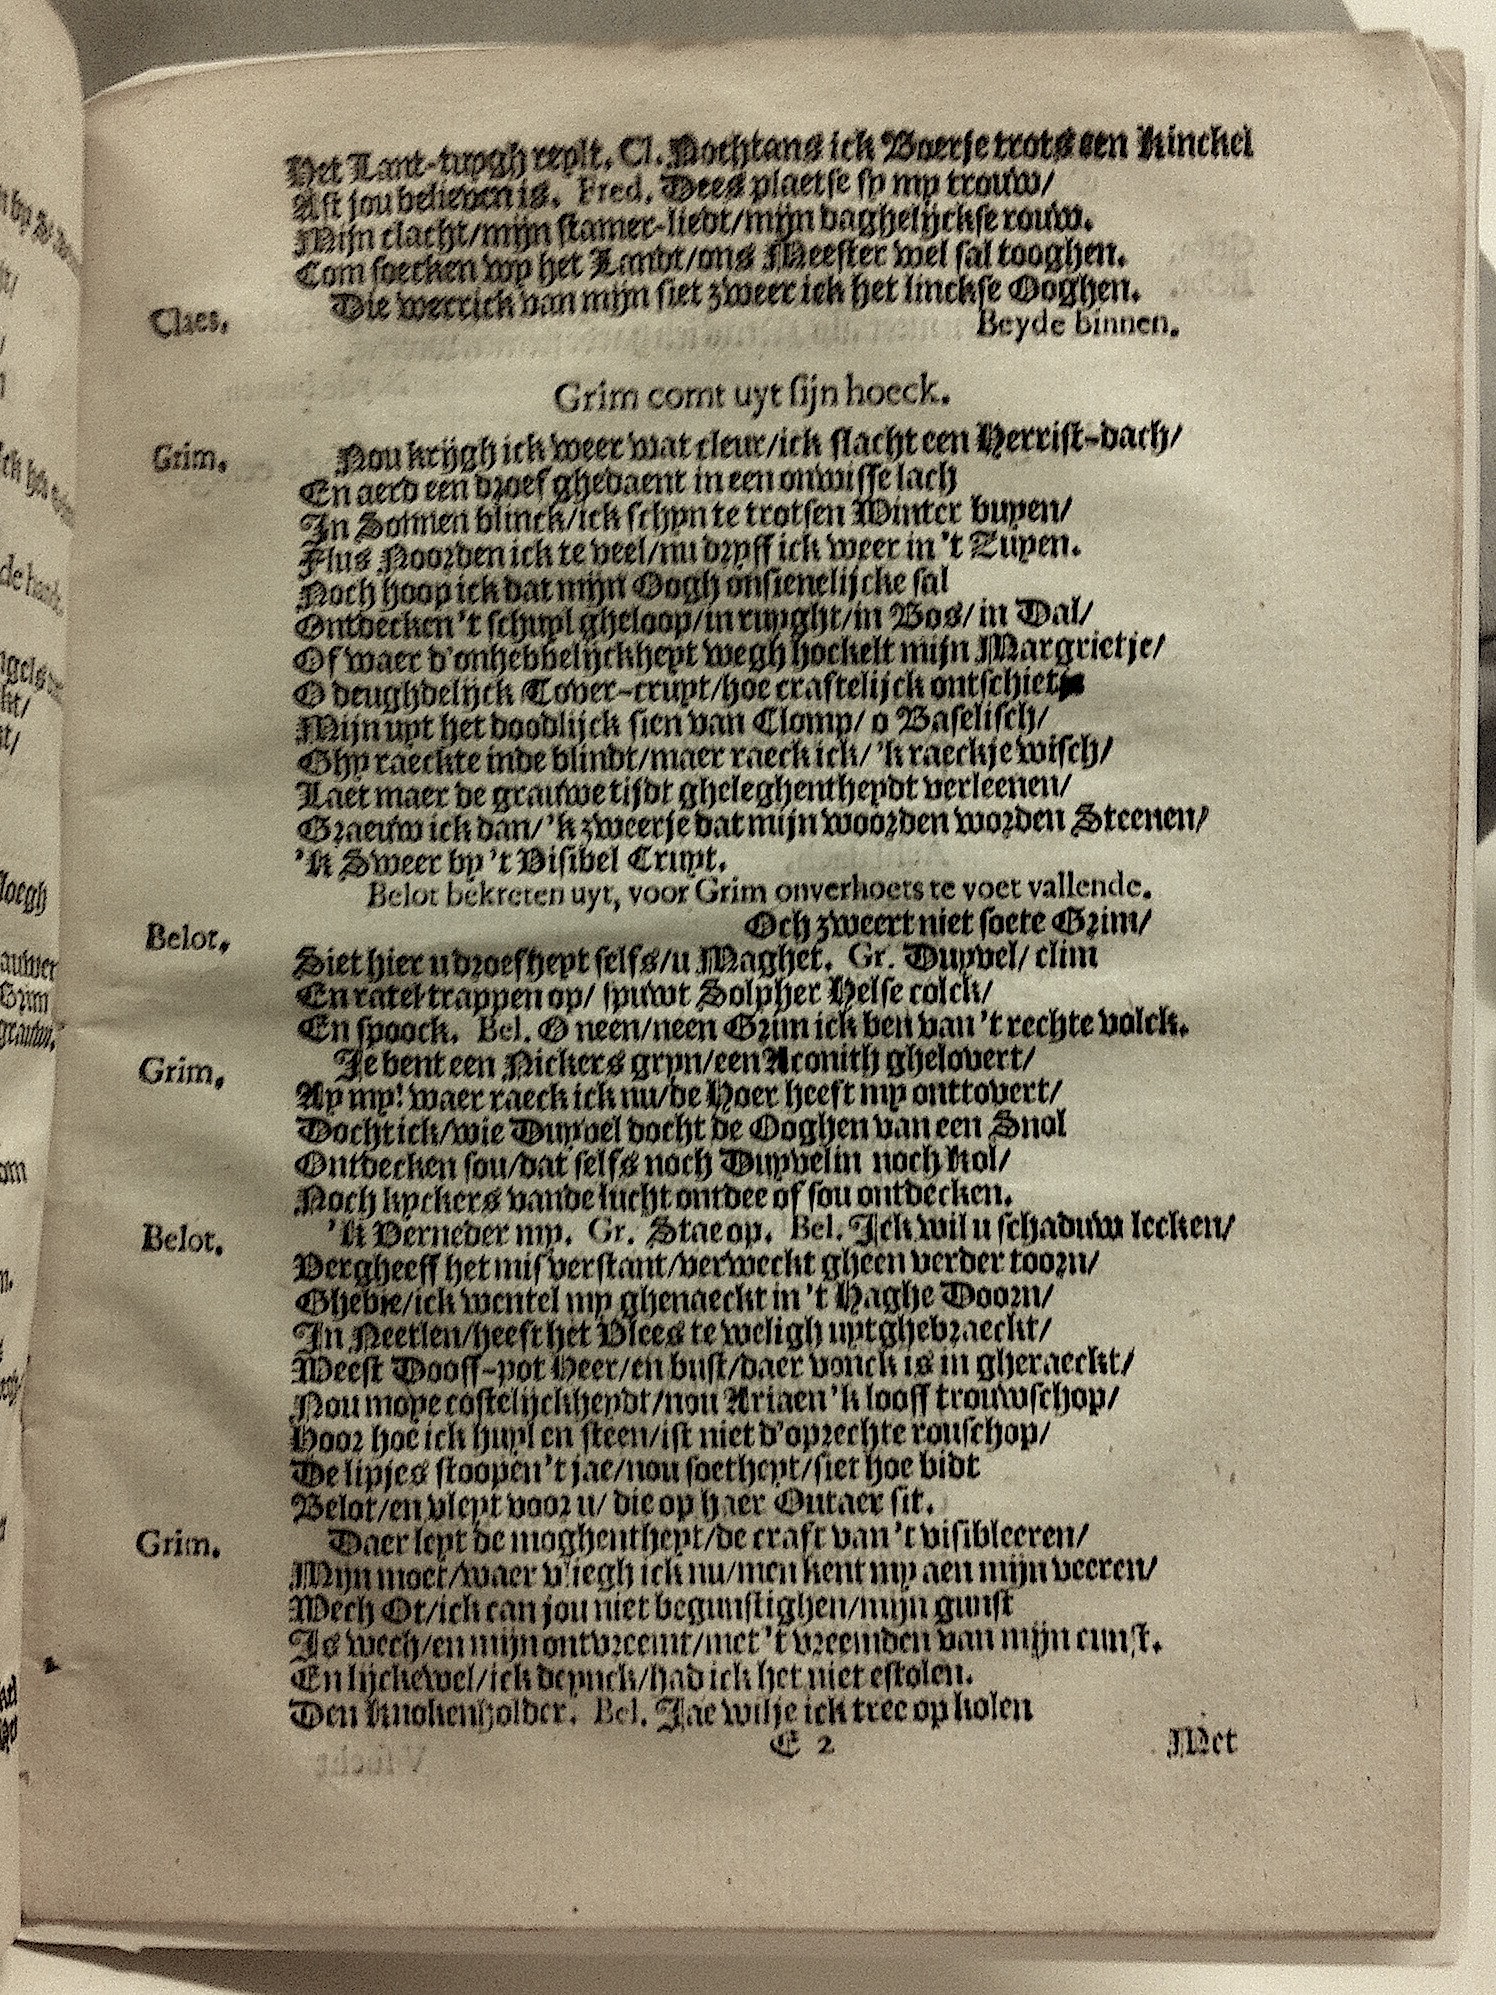 Het Lant-tuygh reylt. Cl. Nochtans ick Boerje trots een Kinckel
Alst jou believen is. Fred. Dees plaetse sy my trouw/
Mijn clacht/mijn stamer-liedt/mijn daghelijckse rouw.
Com soecken wy het Landt/ons Meester wel sal tooghen.
Claes. Die werrick van mijn siet zweer ick het linckse Ooghen.
Beyde binnen.
Grim comt uyt sijn hoeck.
Grim. Nou krijgh ick weer wat cleur/ick slacht een Herrist-dach/
En aerd een droef ghedaent in een onwisse lach
In Sonnen blinck/ick schyn te trotsen Winter buyen/
Flus Noorden ick te veel/nu dryff ick weer in 't Zuyen.
Noch hoop ick dat mijn Oogh onsienelijcke sal
Ontdecken 't schuyl gheloop/in ruyght/in Bos/in Dal/
Of waer d'onhebbelijckheyt wegh hockelt mijn Margrietje/
O deughdelijck Tover-cruyt/hoe craftelijck ontschietje
Mijn uyt het doodlijck sien van Clomp/ o Baselisch/
Ghy raeckte inde blindt/maer raeck ick/ 'k raeckje wisch/
Laet maer de grauwe tijdt gheleghentheydt verleenen/
Graeuw ick dan/ 'k zweerje dat mijn woorden worden Steenen/
'k Sweer by 't Visibel Cruyt.
Belot bekreten uyt, voor Grim onverhoets te voet vallende.
Belot. Och zweert niet soete Grim/
Siet hier u droefheyt selfs/u Maghet. Gr. Duyvel/ clim
En ratel trappen op/ spuwt Solpher Helse colck/
En spoock. Bel. O neen/neen Grim ick ben van 't rechte volck.
Grim. Je bent een Nickers gryn/een Aconith ghelovert/
Ay my! waer raeck ick nu/de Hoer heeft my onttovert/
Docht ick/wie Duyvel docht de Ooghen van een Snol
Ontdecken sou/dat selfs noch Duyvelin noch Kol/
Noch kyckers vande lucht ontdee of sou ontdecken.
Belot. 'k Verneder my. Gr. Stae op. Bel. Ick wil u schaduw lecken/
Vergheeff het misverstant/verweckt gheen verder toorn/
Ghebie/ick wentel my ghenaeckt in 't Haghe Doorn/
In Neetlen/heeft het Vlees te weligh uytghebraeckt/
Meest Dooff-pot Heer/en bust/daer vonck is in gheraeckt/
Nou moye costelijckheydt/nou Ariaen 'k looff trouwschop/
Hoor hoe ick huyl en steen/ist niet d'oprechte rouschop/
De lipjes stoopen 't jae/nou soetheyt/siet hoe bidt
Belot/en vleyt voor u/ die op haer Outaer sit.
Grim. Daer leyt de moghentheyt/de craft van 't visibleeren/
Mijn moet/waer vliegh ick nu/men kent my aen mijn veeren/
Wech Ot/ick can jou niet begunstighen/mijn gunst
Is wech/en mijn ontvreemt/met 't vreemden van mijn cunst.
En lijckewel/ick deynck/had ick het niet estolen.
Den Knokenholder. Bel. Jae wilje ick tree op kolen
E 2 Met